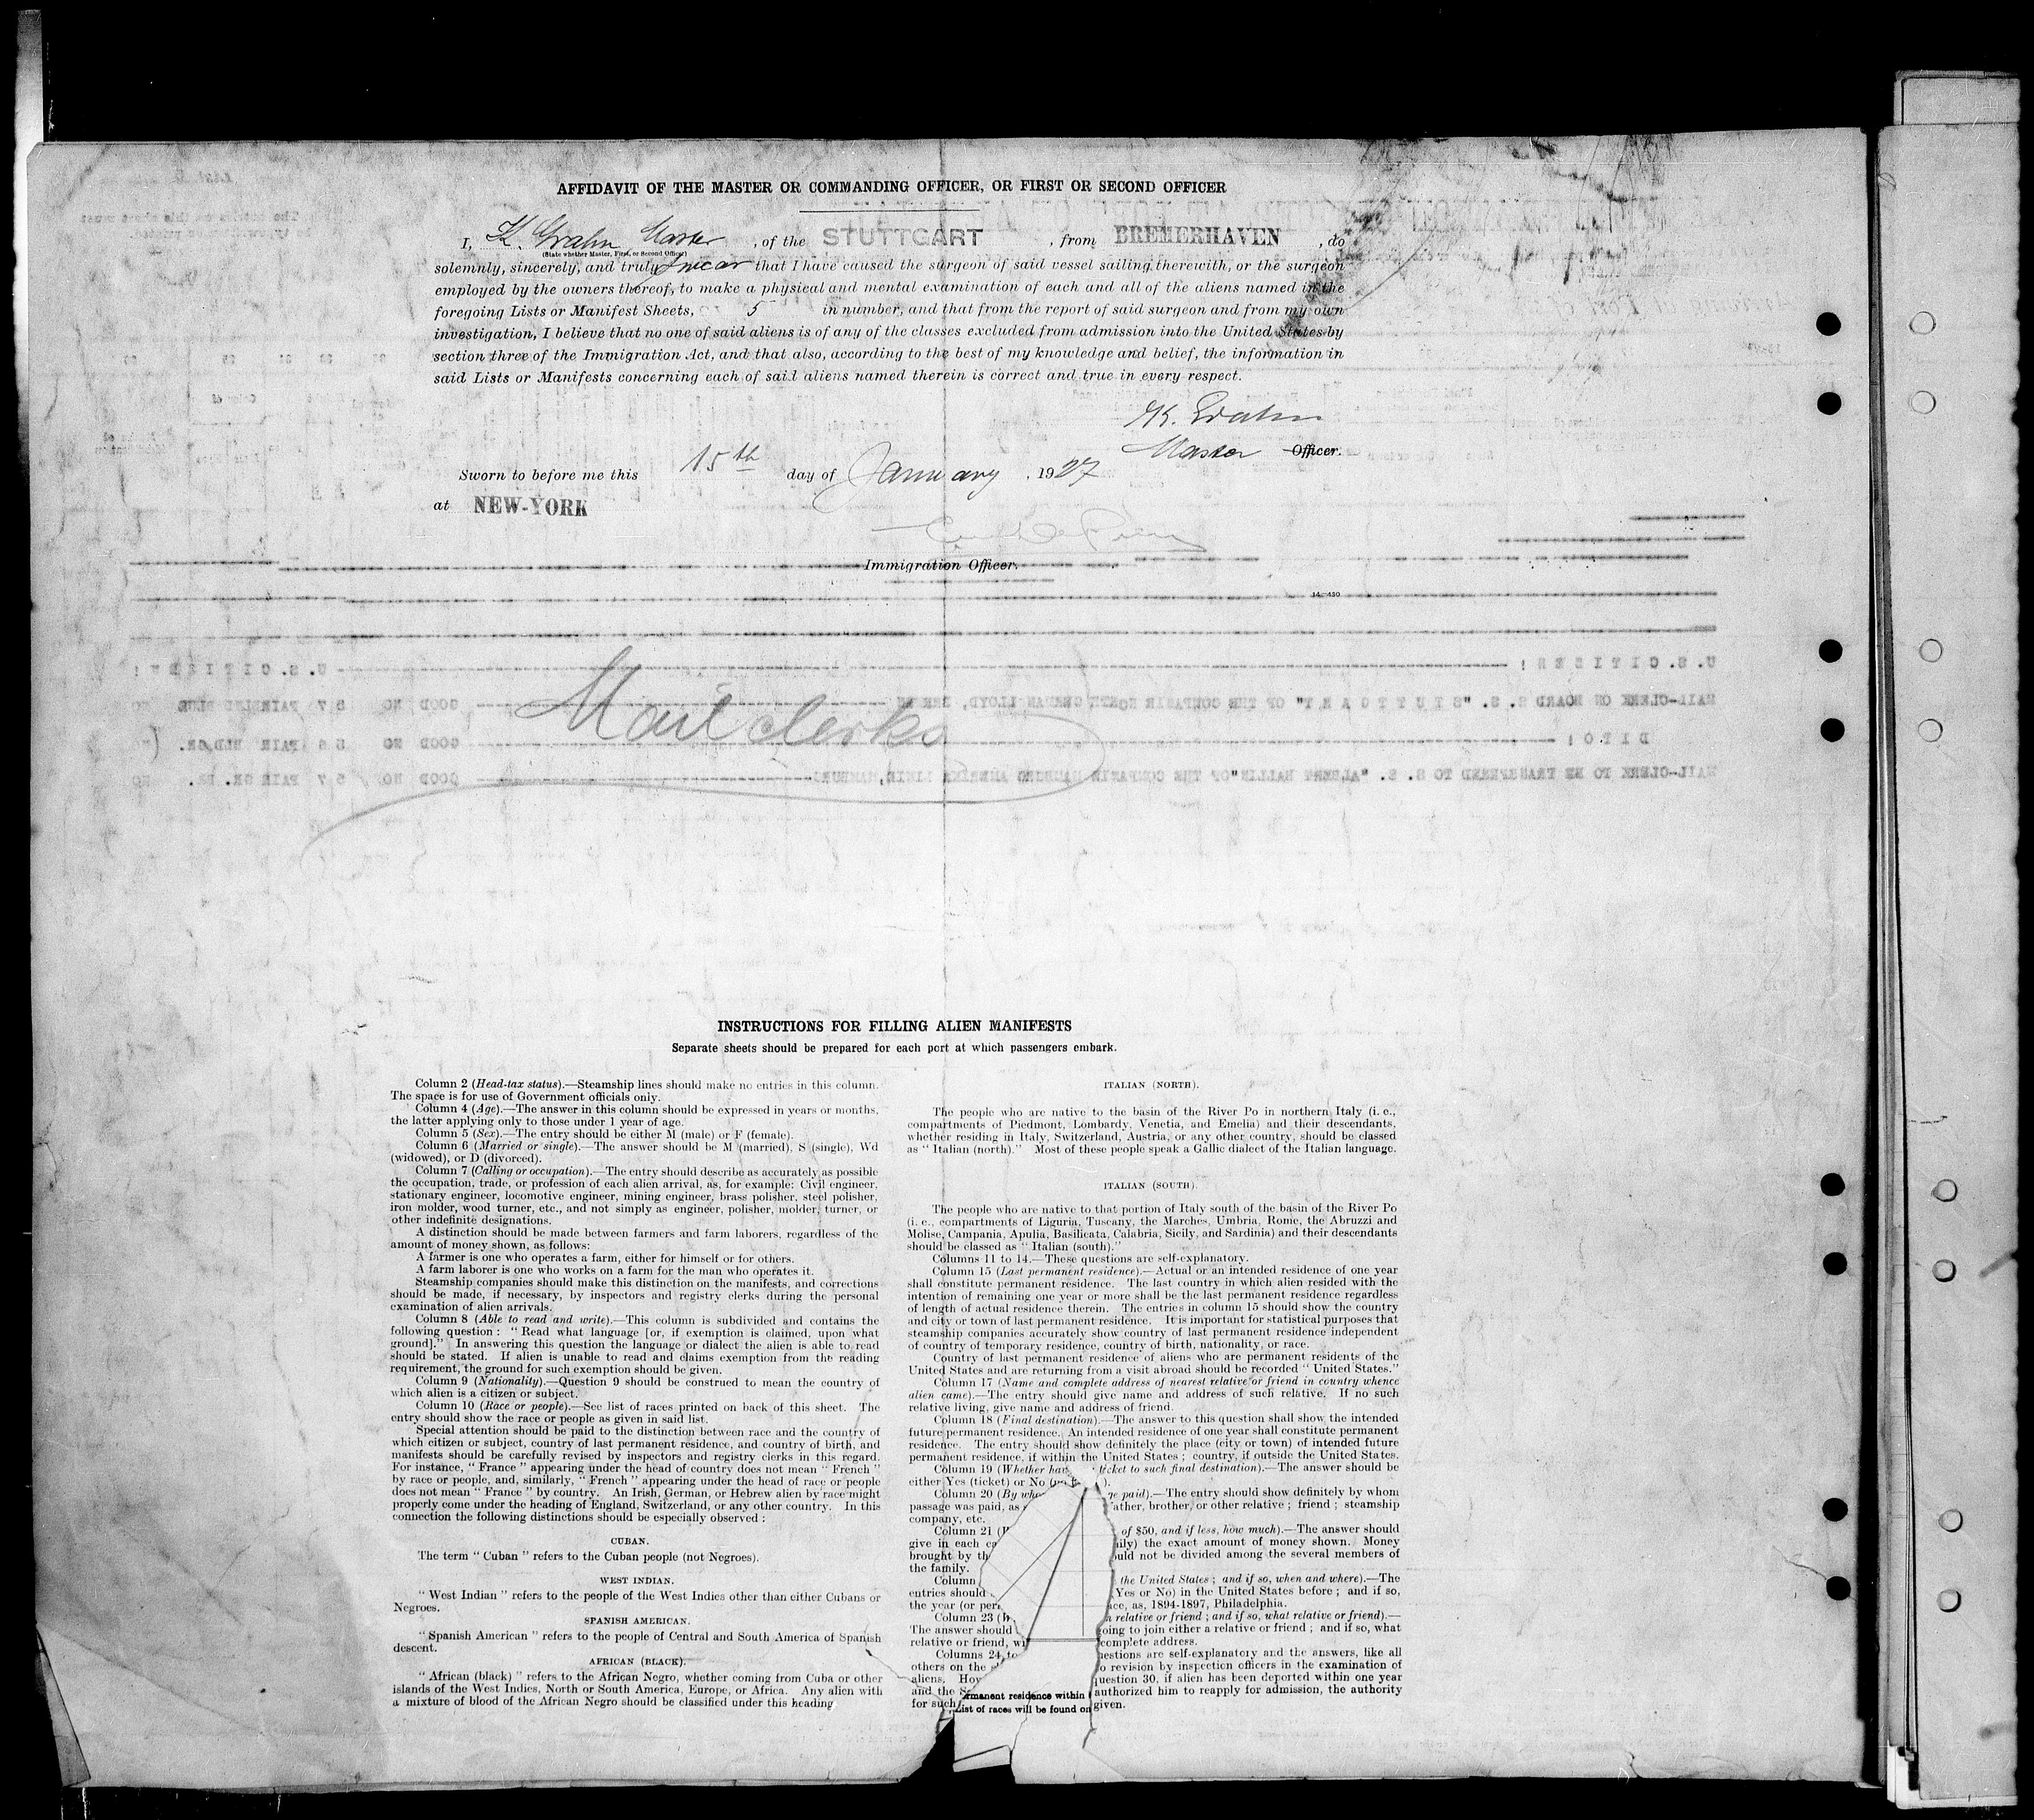 AFFIDAVIT OF THE MASTER OR COMMANDING OFFICER, OR FIRST OR SECOND OFFICER
I, K. Grahn, Master, of the STUTTGART, from BREMERHAVEN, do
(State whether Master, First, or Second Officer)
solemnly, sincerely, and truly swear that I have caused the surgeon of said vessel sailing therewith, or the surgeon
employed by the owners thereof, to make a physical and mental examination of each and all of the aliens named in the
foregoing Lists or Manifest Sheets, 5 in number, and that from the report of said surgeon and from my own
investigation, I believe that no one of said aliens is of any of the classes excluded from admission into the United States by
section three of the Immigration Act, and that also, according to the best of my knowledge and belief, the information in
said Lists or Manifests concerning each of said aliens named therein is correct and true in every respect.
K. Grahn
Master Officer.
Sworn to before me this 15th day of January, 1927
at NEW-YORK
Immigration Officer.
14-480
Mail clerks
INSTRUCTIONS FOR FILLING ALIEN MANIFESTS
Separate sheets should be prepared for each port at which passengers embark.
Column 2 (Head-tax status).—Steamship lines should make no entries in this column.
The space is for use of Government officials only.
Column 4 (Age).—The answer in this column should be expressed in years or months,
the latter applying only to those under 1 year of age.
Column 5 (Sex).—The entry should be either M (male) or F (female).
Column 6 (Married or single).—The answer should be M (married), S (single), Wd
(widowed), or D (divorced).
Column 7 (Calling or occupation).—The entry should describe as accurately as possible
the occupation, trade, or profession of each alien arrival, as, for example: Civil engineer,
stationary engineer, locomotive engineer, mining engineer, brass polisher, steel polisher,
iron molder, wood turner, etc., and not simply as engineer, polisher, molder, turner, or
other indefinite designations.
A distinction should be made between farmers and farm laborers, regardless of the
amount of money shown, as follows:
A farmer is one who operates a farm, either for himself or for others.
A farm laborer is one who works on a farm for the man who operates it.
Steamship companies should make this distinction on the manifests, and corrections
should be made, if necessary, by inspectors and registry clerks during the personal
examination of alien arrivals.
Column 8 (Able to read and write).—This column is subdivided and contains the
following question: "Read what language [or, if exemption is claimed, upon what
ground]." In answering this question the language or dialect the alien is able to read
should be stated. If alien is unable to read and claims exemption from the reading
requirement, the ground for such exemption should be given.
Column 9 (Nationality).—Question 9 should be construed to mean the country of
which alien is a citizen or subject.
Column 10 (Race or people).—See list of races printed on back of this sheet. The
entry should show the race or people as given in said list.
Special attention should be paid to the distinction between race and the country of
which citizen or subject, country of last permanent residence, and country of birth, and
manifests should be carefully revised by inspectors and registry clerks in this regard.
For instance, "France" appearing under the head of country does not mean "French"
by race or people, and, similarly, "French" appearing under the head of race or people
does not mean "France" by country. An Irish, German, or Hebrew alien by race might
properly come under the heading of England, Switzerland, or any other country. In this
connection the following distinctions should be especially observed:
CUBAN.
The term "Cuban" refers to the Cuban people (not Negroes).
WEST INDIAN.
"West Indian" refers to the people of the West Indies other than either Cubans or
Negroes.
SPANISH AMERICAN.
"Spanish American" refers to the people of Central and South America of Spanish
descent.
AFRICAN (BLACK).
"African (black)" refers to the African Negro, whether coming from Cuba or other
islands of the West Indies, North or South America, Europe, or Africa. Any alien with
a mixture of blood of the African Negro should be classified under this heading
ITALIAN (NORTH).
The people who are native to the basin of the River Po in northern Italy (i. e.,
compartments of Piedmont, Lombardy, Venetia, and Emelia) and their descendants,
whether residing in Italy, Switzerland, Austria, or any other country, should be classed
as "Italian (north)." Most of these people speak a Gallic dialect of the Italian language.
ITALIAN (SOUTH).
The people who are native to that portion of Italy south of the basin of the River Po
(i. e., compartments of Liguria, Tuscany, the Marches, Umbria, Rome, the Abruzzi and
Molise, Campania, Apulia, Basilicata, Calabria, Sicily, and Sardinia) and their descendants
should be classed as "Italian (south)."
Columns 11 to 14.—These questions are self-explanatory.
Column 15 (Last permanent residence).—Actual or an intended residence of one year
shall constitute permanent residence. The last country in which alien resided with the
intention of remaining one year or more shall be the last permanent residence regardless
of length of actual residence therein. The entries in column 15 should show the country
and city or town of last permanent residence. It is important for statistical purposes that
steamship companies accurately show country of last permanent residence independent
of country of temporary residence, country of birth, nationality, or race.
Country of last permanent residence of aliens who are permanent residents of the
United States and are returning from a visit abroad should be recorded "United States."
Column 17 (Name and complete address of nearest relative or friend in country whence
alien came).—The entry should give name and address of such relative. If no such
relative living, give name and address of friend.
Column 18 (Final destination).—The answer to this question shall show the intended
future permanent residence. An intended residence of one year shall constitute permanent
residence. The entry should show definitely the place (city or town) of intended future
permanent residence, if within the United States; country, if outside the United States.
Column 19 (Whether hav ticket to such final destination).—The answer should be
either Yes (ticket) or No
Column 20 (By who ge paid).—The entry should show definitely by whom
passage was paid, as father, brother, or other relative; friend; steamship
company, etc.
Column 21 of $50, and if less, how much).—The answer should
give in each ca ily) the exact amount of money shown. Money
brought by th ould not be divided among the several members of
the family.
Column the United States; and if so, when and where).—The
entries should Yes or No) in the United States before; and if so,
the year (or peri ace, as, 1894-1897, Philadelphia.
Column 23 (W n relative or friend; and if so, what relative or friend).—
The answer should oing to join either a relative or friend; and if so, what
relative or friend, wi complete address.
Columns 24 to uestions are self-explanatory and the answers, like all
others on the o revision by inspection officers in the examination of
aliens. How question 30, if alien has been deported within one year
and the S authorized him to reapply for admission, the authority
for such given.
rmanent residence within
List of races will be found on